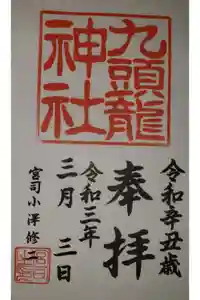 九頭龍
神社
令和辛丑歳
奉拝
令和三年
三月三日
宮司小澤修二